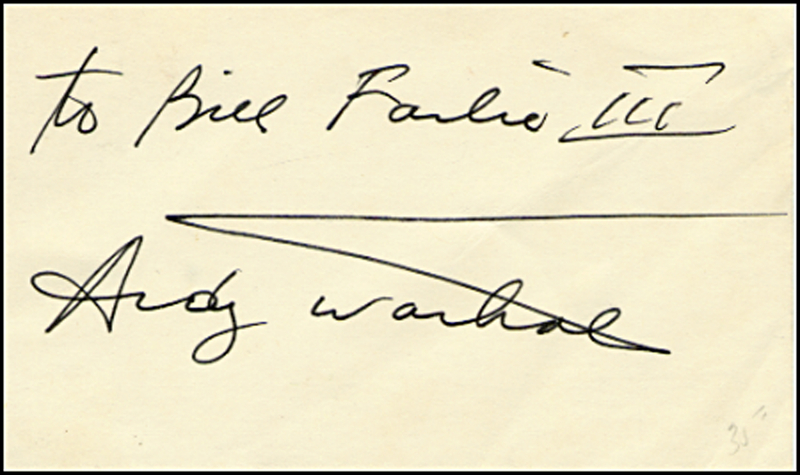 to Bill Farlio III
Andy Warhol